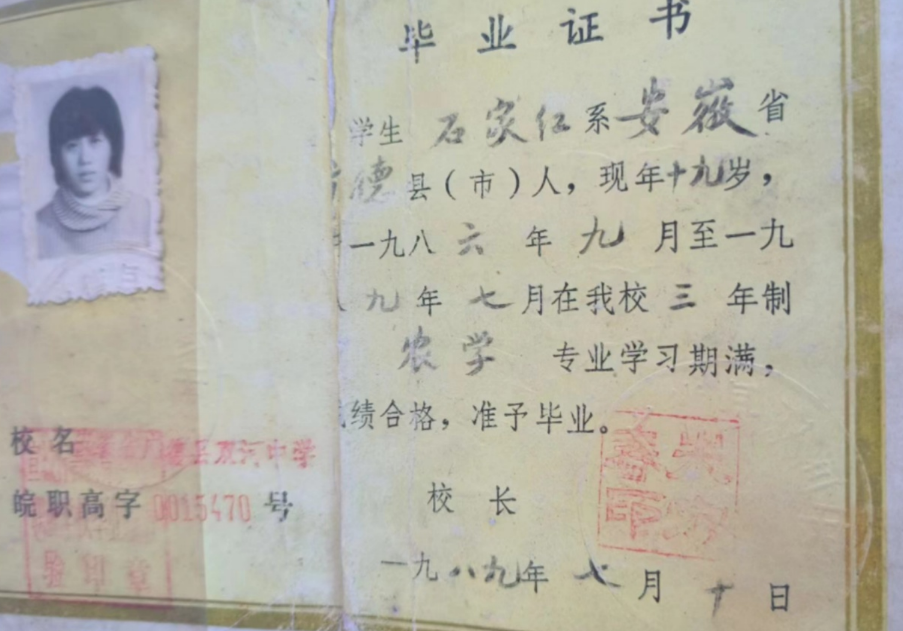 毕业证书
学生 石家红 系 安徽 省
德 县(市)人,现年十九岁,
一九八六年九月至一九
九年七月在我校三年制
农学 专业学习期满,
绩合格,准予毕业。
校长
一九八九年七月十日
校名 县双河中学
皖职高字 0015470 号
验印章